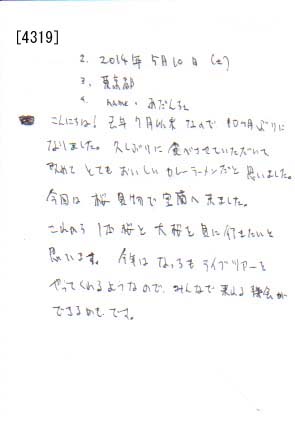 [4319]
2. 2014年 5月10日 (土)
3. 東京都
4. name.
こんにちは! 去年7月以来なので 10ヶ月ぶりに
なりました。久しぶりに 食べさせていただいて
改めて とてもおいしい カレーラーメンだと思いました。
今回は 桜見物で室蘭へ来ました。
これから 1本桜と 大桜を見に行きたいと
思います。 今年は なっちもライブツアーを
やってくれるようなので、みんなで 来れる 機会が
できるかもです。